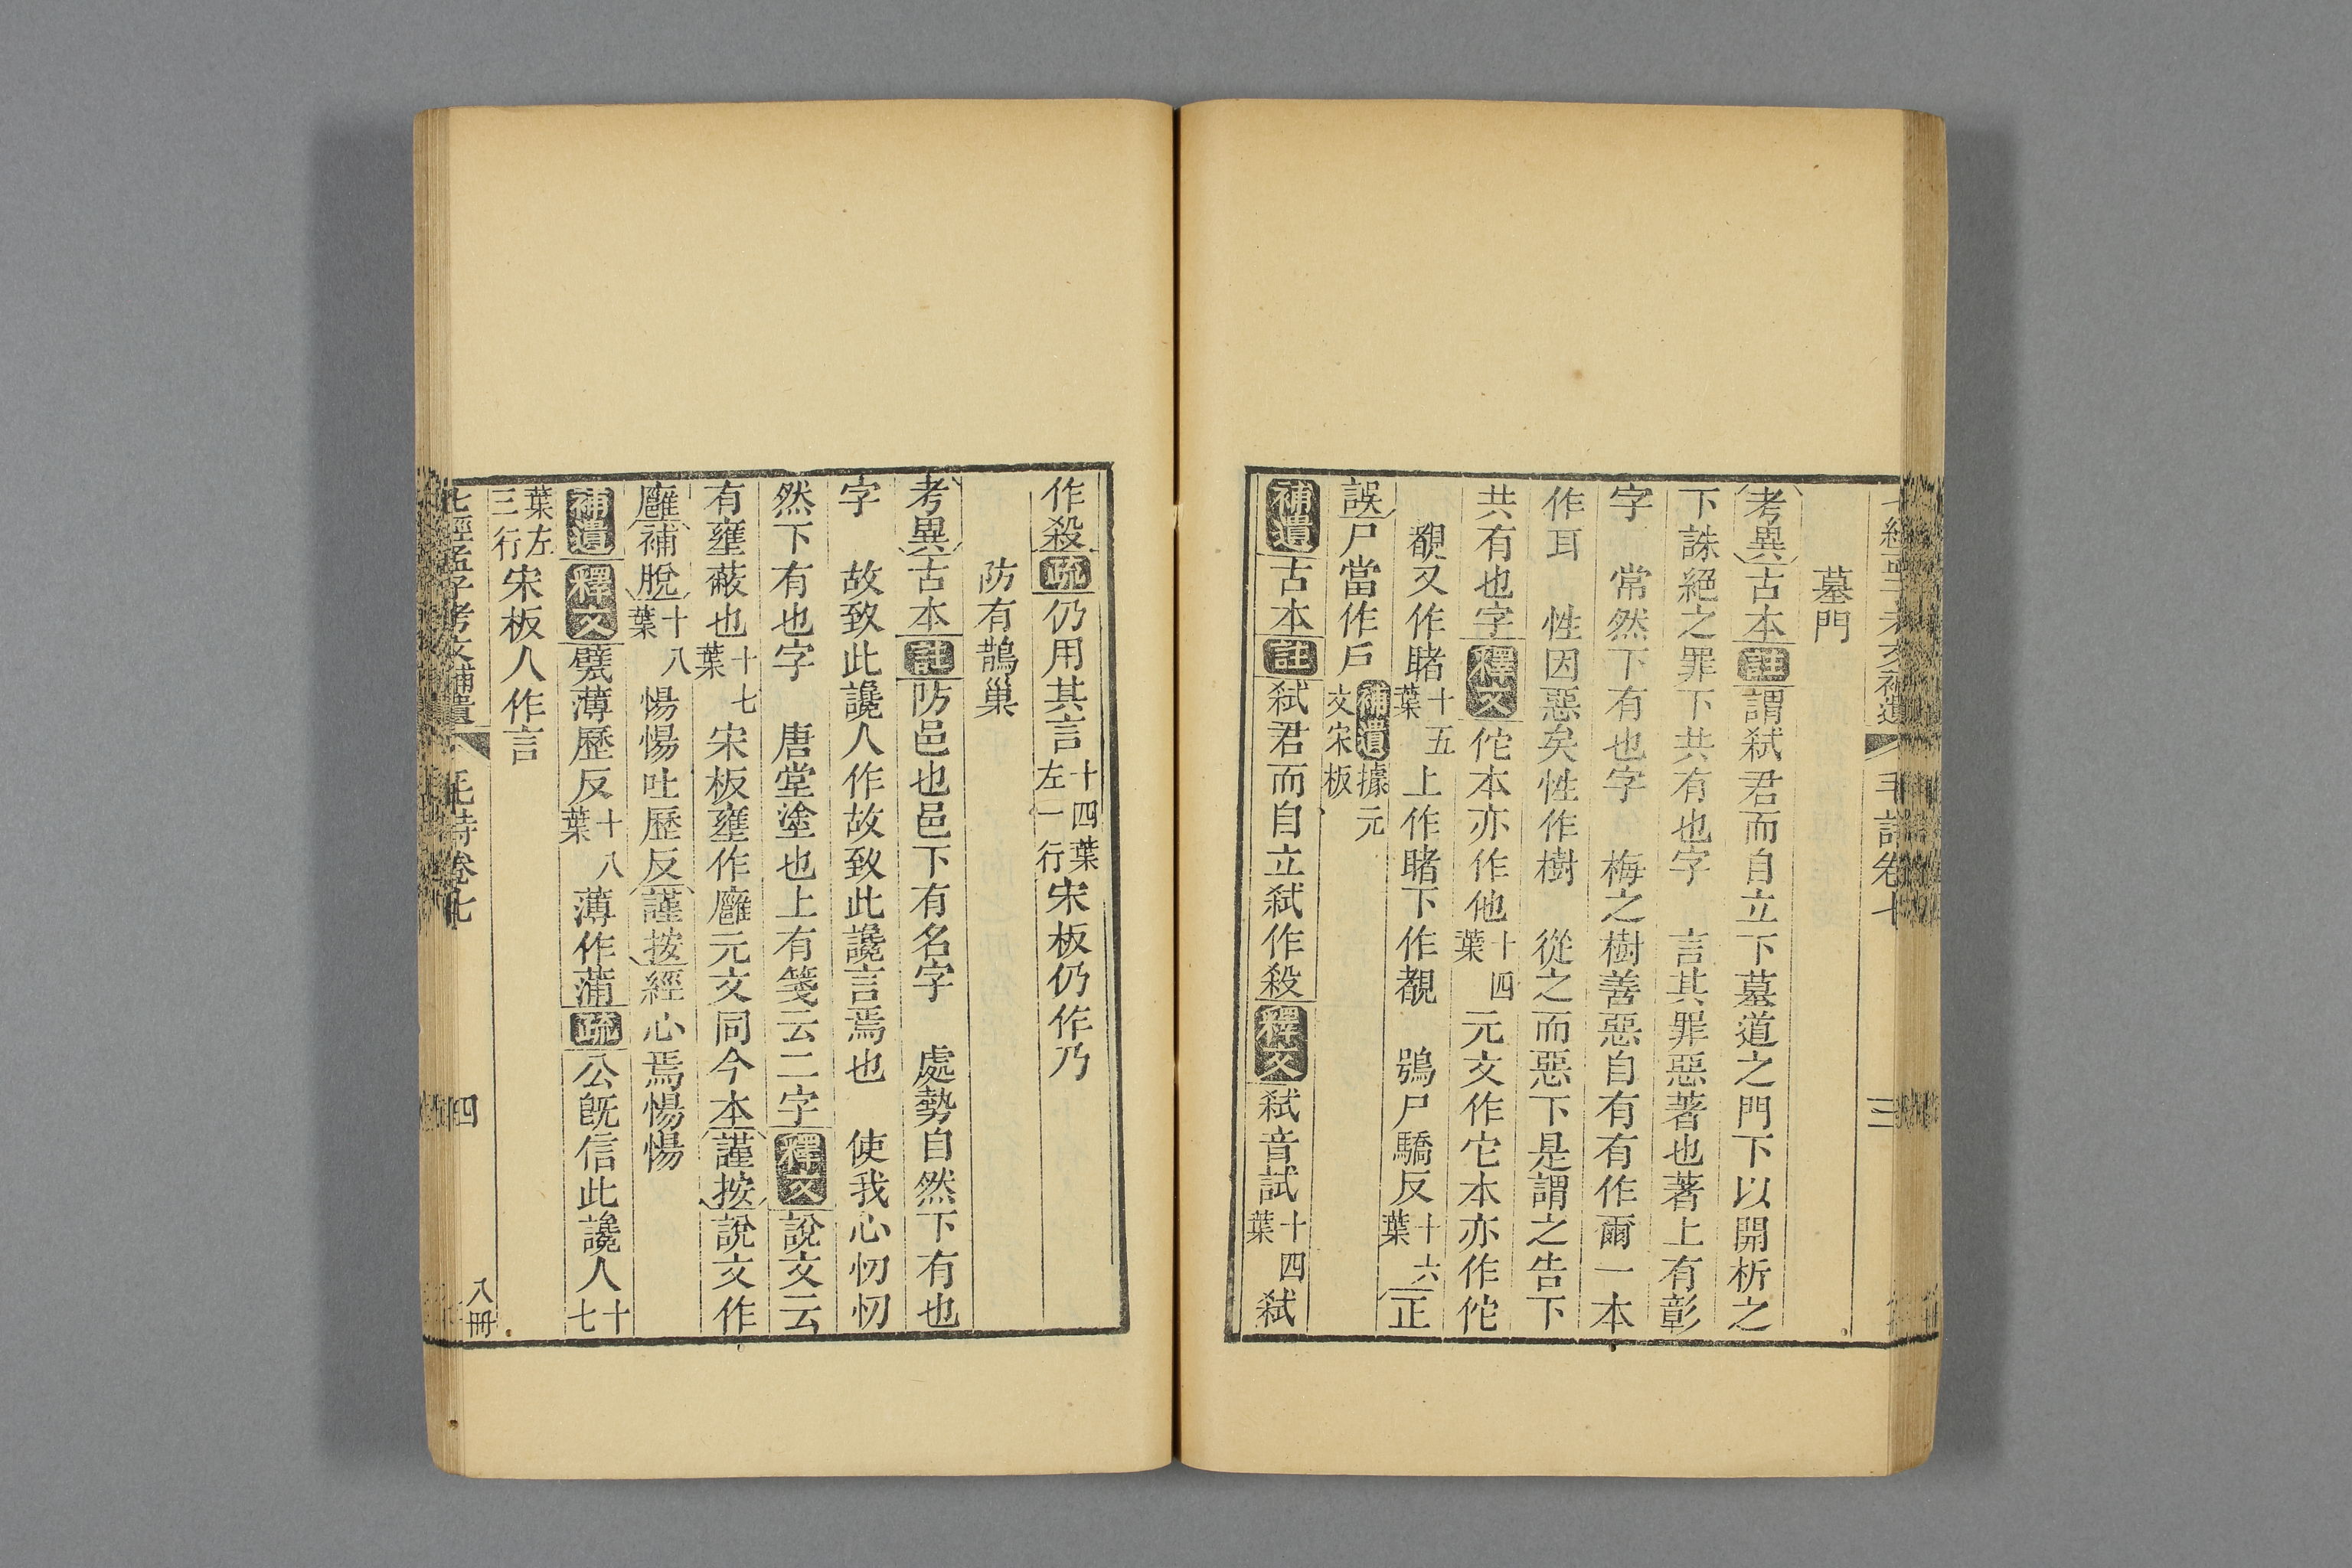 墓門
考異古本註謂弑君而自立下墓道之門下以開析之
下誅絕之罪下共有也字　言其罪惡著也著上有彰
字　常然下有也字　梅之樹善惡自有有作爾一本
作耳　性因惡矣性作樹　從之而惡下是謂之告下
共有也字釋文佗本亦作他十四葉元文作它本亦作佗
覩又作睹十五葉上作睹下作覩　鴞尸驕反十六葉正
誤尸當作戶補遺據元文宋板
補遺古本註弑君而自立弑作殺釋文弑音試十四葉弑
作殺疏仍用其言十四葉左一行宋板仍作乃
防有鵲巢
考異古本註防邑也邑下有名字　處勢自然下有也
字　故致此讒人作故致此讒言焉也　使我心忉忉
然下有也字　唐堂塗也上有箋云二字釋文說文云
有壅蔽也十七葉宋板壅作廱元文同今本謹按說文作
廱補脫十八葉惕惕吐歷反謹按經心焉惕惕
補遺釋文甓薄歷反十八葉薄作蒲疏公旣信此讒人十七
葉左三行宋板人作言
七經孟子考文補遺　毛詩卷七　四　八冊